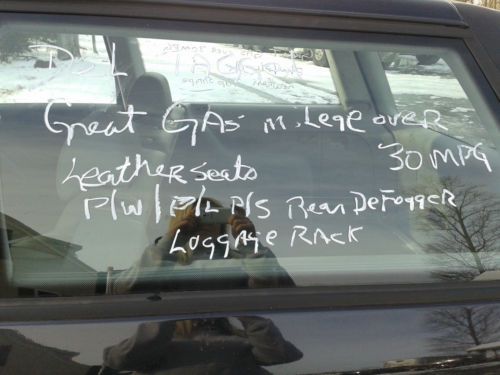 Great GAs mileage over
30 MPG
Leather Seats
P/W / P/L P/S Rear DeFogger
Luggage Rack